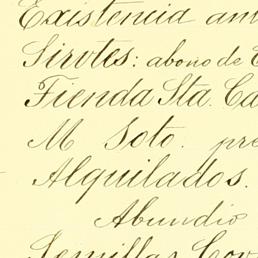 Existencia an
Sirvtes: abono de
Tienda Sta. Ca
M Soto. pre
Alquilados.
Abundio
Semillas Cov